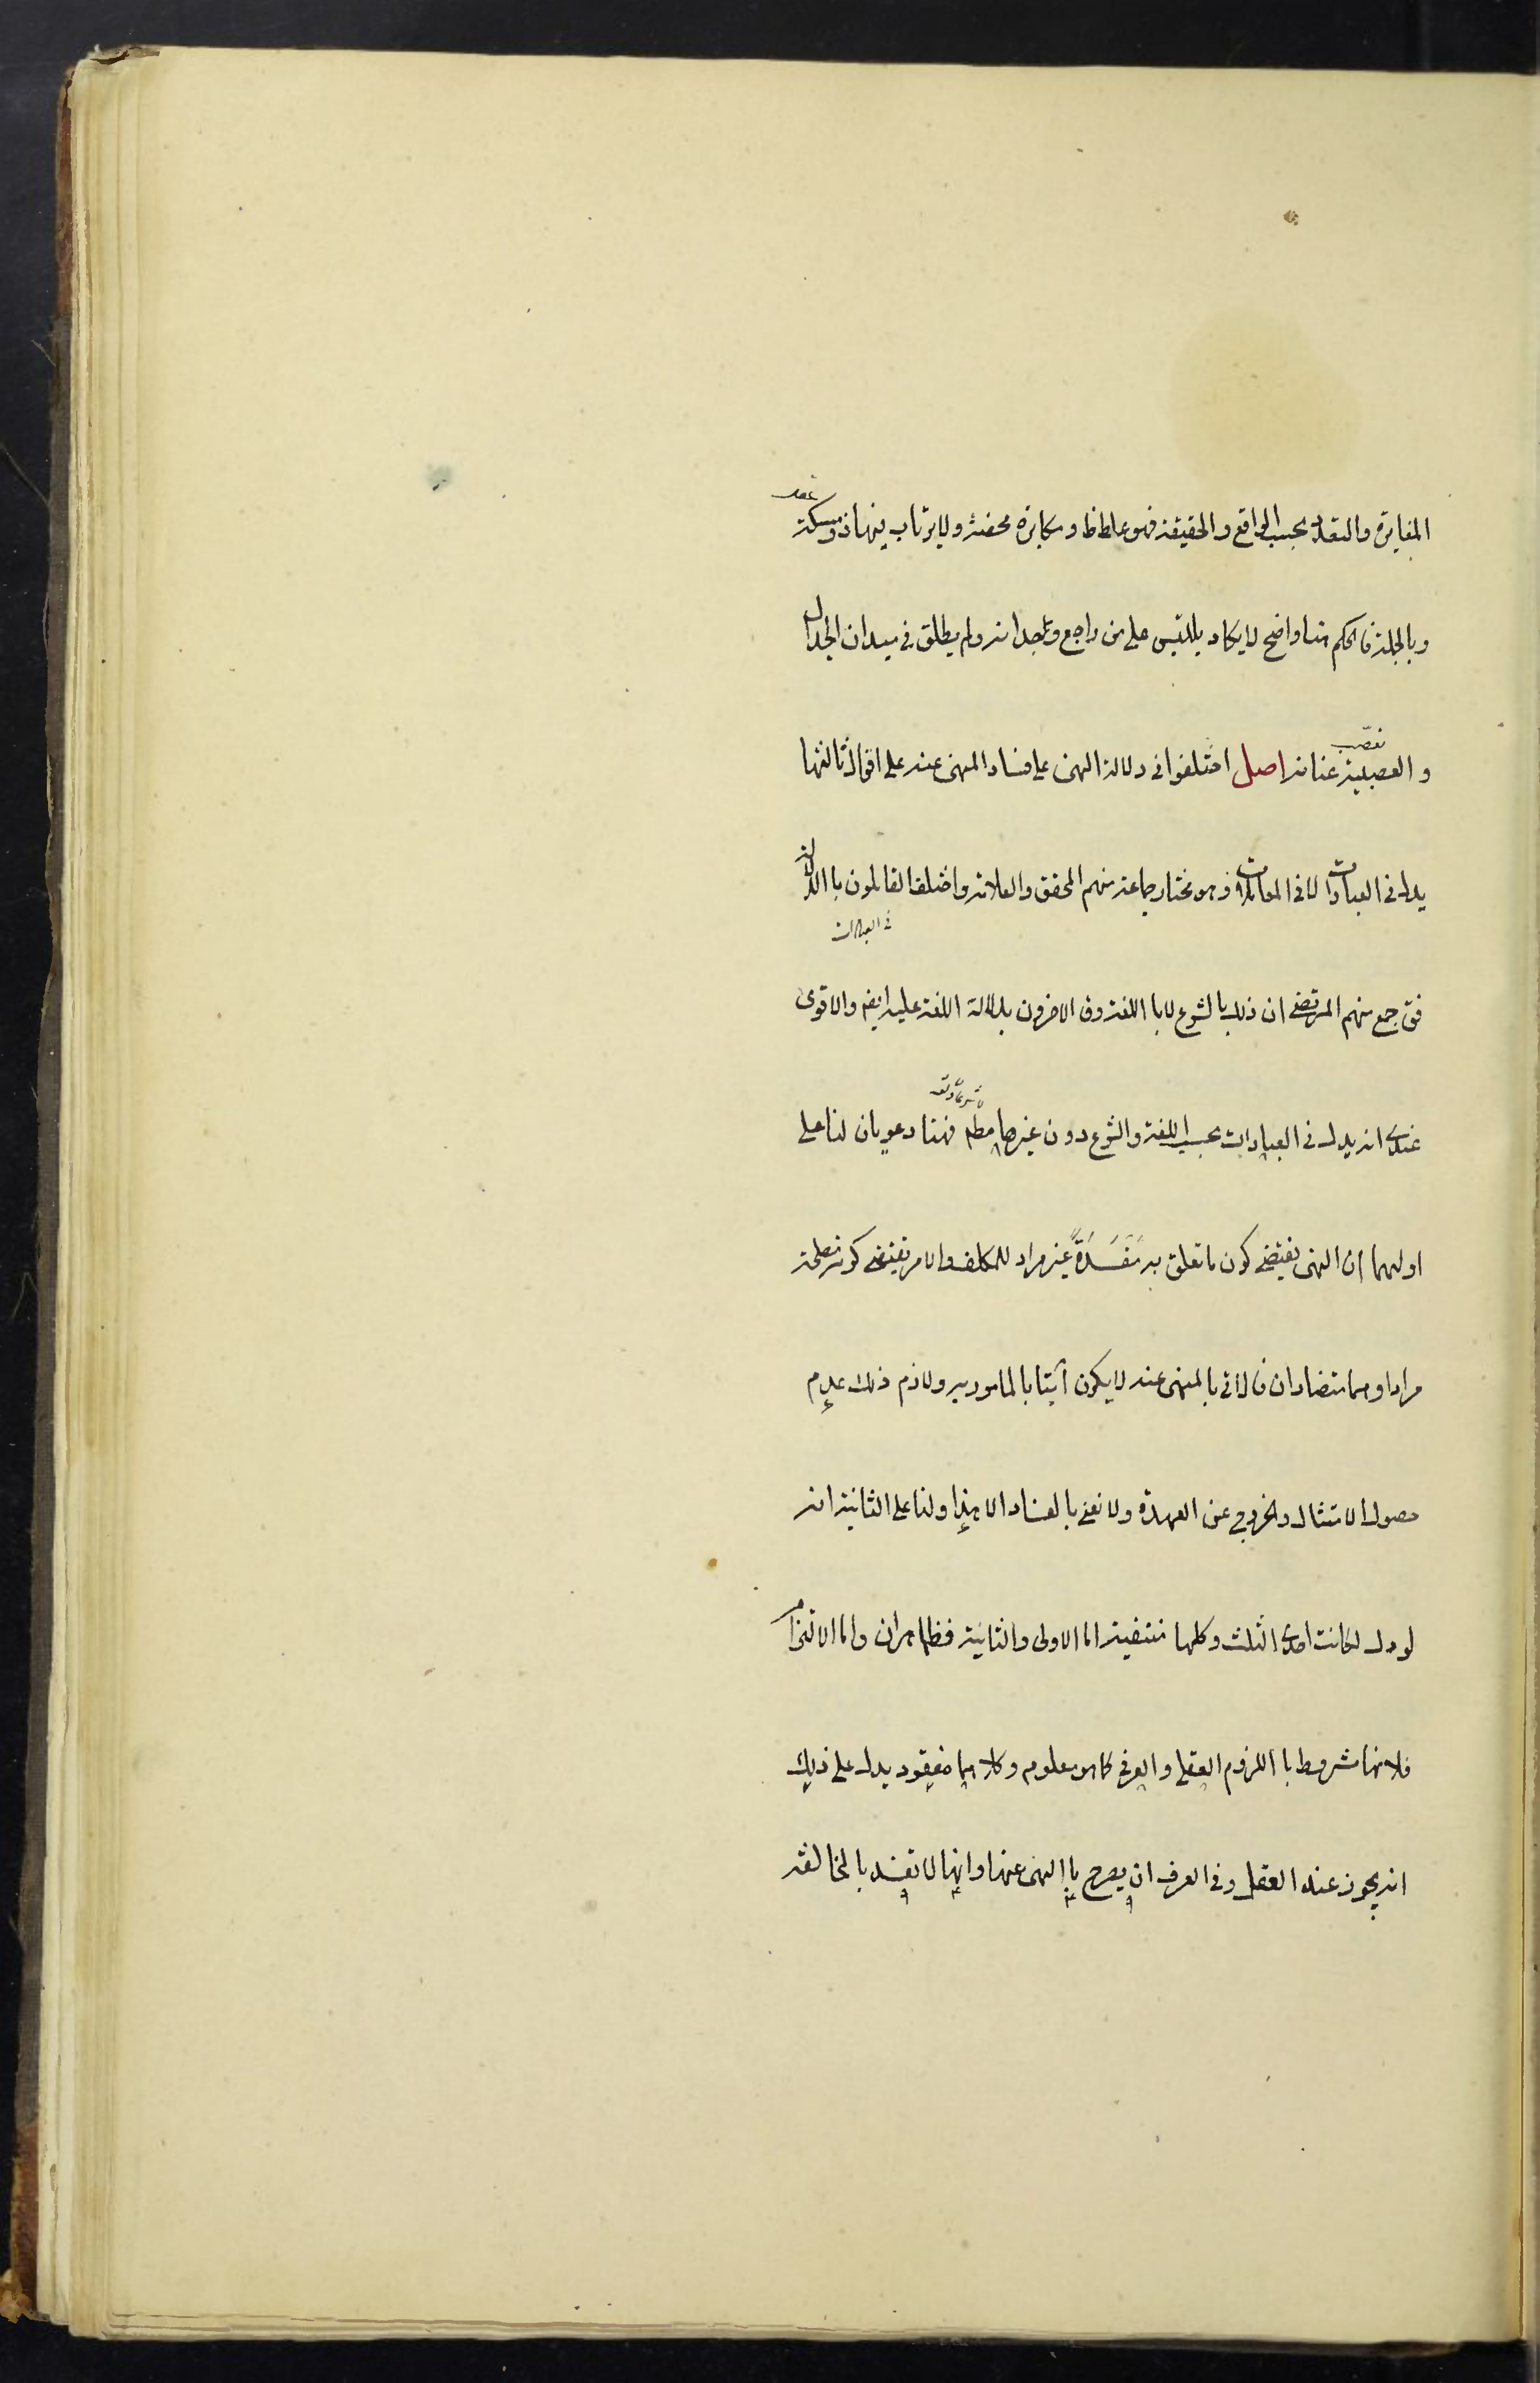 المغايرة والتعدد بحسب الواقع والحقيقة فهو غلط ظ ومكابرة محضة ولا يرتاب فيها ذو مسكة
وبالجملة فالحكم هنا واضح لا يكاد يلتبس على من راجع وجدانه ولم يطلق في ميدان الجدال
تعصب
والعصبية عنانه اصل اختلفوا في دلالة النهى على فساد المنهى عنه على اقوال ثالثها
يدل في العبادات لا في المعاملات وهو مختار جماعة منهم المحقق والعلامة واختلف القائلون بالدلالة
في العبادات
فق جمع منهم المرتضى ان ذلك بالشرع لا باللغة وق الاخرون بدلالة اللغة عليه ايضه والاقوى
عندى انه يدل في العبادات بحسب اللغة والشرع دون غيرها مطه فهنا دعويان لنا على
اوليهما ان النهى يقتضى كون ما تعلق به مَفسَدَةً غير مراد للمكلف والامر يقتضى كونه مصلحة
مرادا وهما متضادان فالاتى بالمنهى عنه لا يكون آتيا بالمامور به ولازم ذلك عدم
حصول الامتثال والخروج عن العهدة ولا نعنى بالفساد الا هذا ولنا على الثانية انه
لو دل لكانت احدى الثلث وكلها منتفية اما الاولى والثانية فظاهران واما الالتزام
فلانها مشروط باللزوم العقلى والعرفى كما هو معلوم وكلاهما مفقود يدل على ذلك
انه يجوز عند العقل وفي العرف ان يصرح بالنهى عنها وانها لا تفسد بالمخالفة